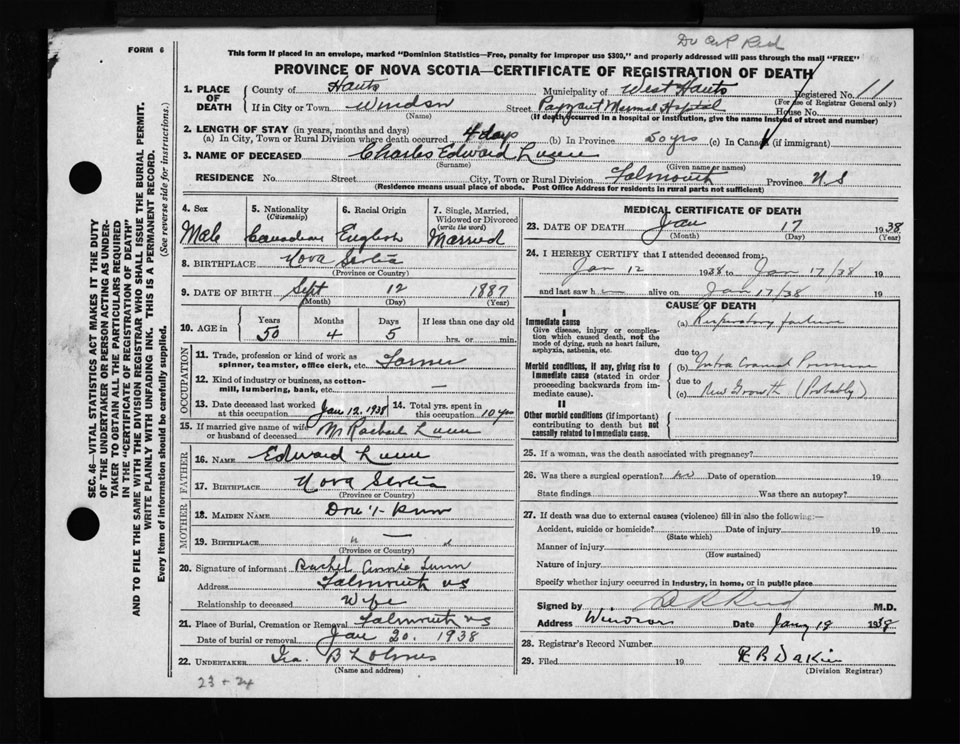 FORM 6
Dr Reid
This form if placed in an envelope, marked "Dominion Statistics—Free, penalty for improper use $300," and properly addressed will pass through the mail "FREE"
PROVINCE OF NOVA SCOTIA—CERTIFICATE OF REGISTRATION OF DEATH
1. PLACE OF DEATH County of Hants Municipality of West Hants Registered No. 11
(For use of Registrar General only)
If in City or Town Windsor Street Payzant Memorial Hospital House No.
(Name) (If death occurred in a hospital or institution, give the name instead of street and number)
2. LENGTH OF STAY (in years, months and days)
(a) In City, Town or Rural Division where death occurred 4 days (b) In Province 50 yrs (c) In Canada (if immigrant)
3. NAME OF DECEASED Charles Edward Lunn
(Surname) (Given name or names)
RESIDENCE No. Street City, Town or Rural Division Falmouth Province N S
(Residence means usual place of abode. Post Office Address for residents in rural parts not sufficient)
4. Sex 5. Nationality (Citizenship) 6. Racial Origin 7. Single, Married, Widowed or Divorced (write the word)
Male Canadian English Married
8. BIRTHPLACE Nova Scotia
(Province or Country)
9. DATE OF BIRTH Sept 12 1887
(Month) (Day) (Year)
10. AGE in Years Months Days If less than one day old
50 4 5 hrs. or min.
OCCUPATION
11. Trade, profession or kind of work as spinner, teamster, office clerk, etc. Farmer
12. Kind of industry or business, as cotton-mill, lumbering, bank, etc. —
13. Date deceased last worked at this occupation Jan 12, 1938 14. Total yrs. spent in this occupation 10 yrs
15. If married give name of wife or husband of deceased Rachael Lunn
FATHER
16. NAME Edward Lunn
17. BIRTHPLACE Nova Scotia
(Province or Country)
MOTHER
18. MAIDEN NAME Don't know
19. BIRTHPLACE " — "
(Province or Country)
20. Signature of informant Rachel Annie Lunn
Address Falmouth NS
Relationship to deceased Wife
21. Place of Burial, Cremation or Removal Falmouth NS
Date of burial or removal Jan 20. 1938
22. UNDERTAKER Ira. B
(Name and address)
23 + 24
MEDICAL CERTIFICATE OF DEATH
23. DATE OF DEATH Jan 17 1938
(Month) (Day) (Year)
24. I HEREBY CERTIFY that I attended deceased from:
Jan 12 1938 to Jan 17/38 19
and last saw h alive on Jan 17/38 19
CAUSE OF DEATH
I
Immediate cause
Give disease, injury or complication which caused death, not the mode of dying, such as heart failure, asphyxia, asthenia, etc.
(a) Respiratory failure
due to
Morbid conditions, if any, giving rise to immediate cause (stated in order proceeding backwards from immediate).
(b) Intra Cranial Pressure
due to
(c) New Growth (Probably)
II
Other morbid conditions (if important) contributing to death but not causally related to immediate cause.
25. If a woman, was the death associated with pregnancy?
26. Was there a surgical operation? no Date of operation 19
State findings Was there an autopsy?
27. If death was due to external causes (violence) fill in also the following:—
Accident, suicide or homicide? Date of injury 19
(State which)
Manner of injury
(How sustained)
Nature of injury
Specify whether injury occurred in industry, in home, or in public place
Signed by Reid M.D.
Address Windsor Date Jany 18 1938
28. Registrar's Record Number
29. Filed 19 Dakin
(Division Registrar)
SEC. 46—VITAL STATISTICS ACT MAKES IT THE DUTY
OF THE UNDERTAKER OR PERSON ACTING AS UNDER-
TAKER TO OBTAIN ALL THE PARTICULARS REQUIRED
IN THE "CERTIFICATE OF REGISTRATION OF DEATH"
AND TO FILE THE SAME WITH THE DIVISION REGISTRAR WHO SHALL ISSUE THE BURIAL PERMIT.
WRITE PLAINLY WITH UNFADING INK. THIS IS A PERMANENT RECORD.
Every item of information should be carefully supplied. (See reverse side for instructions.)